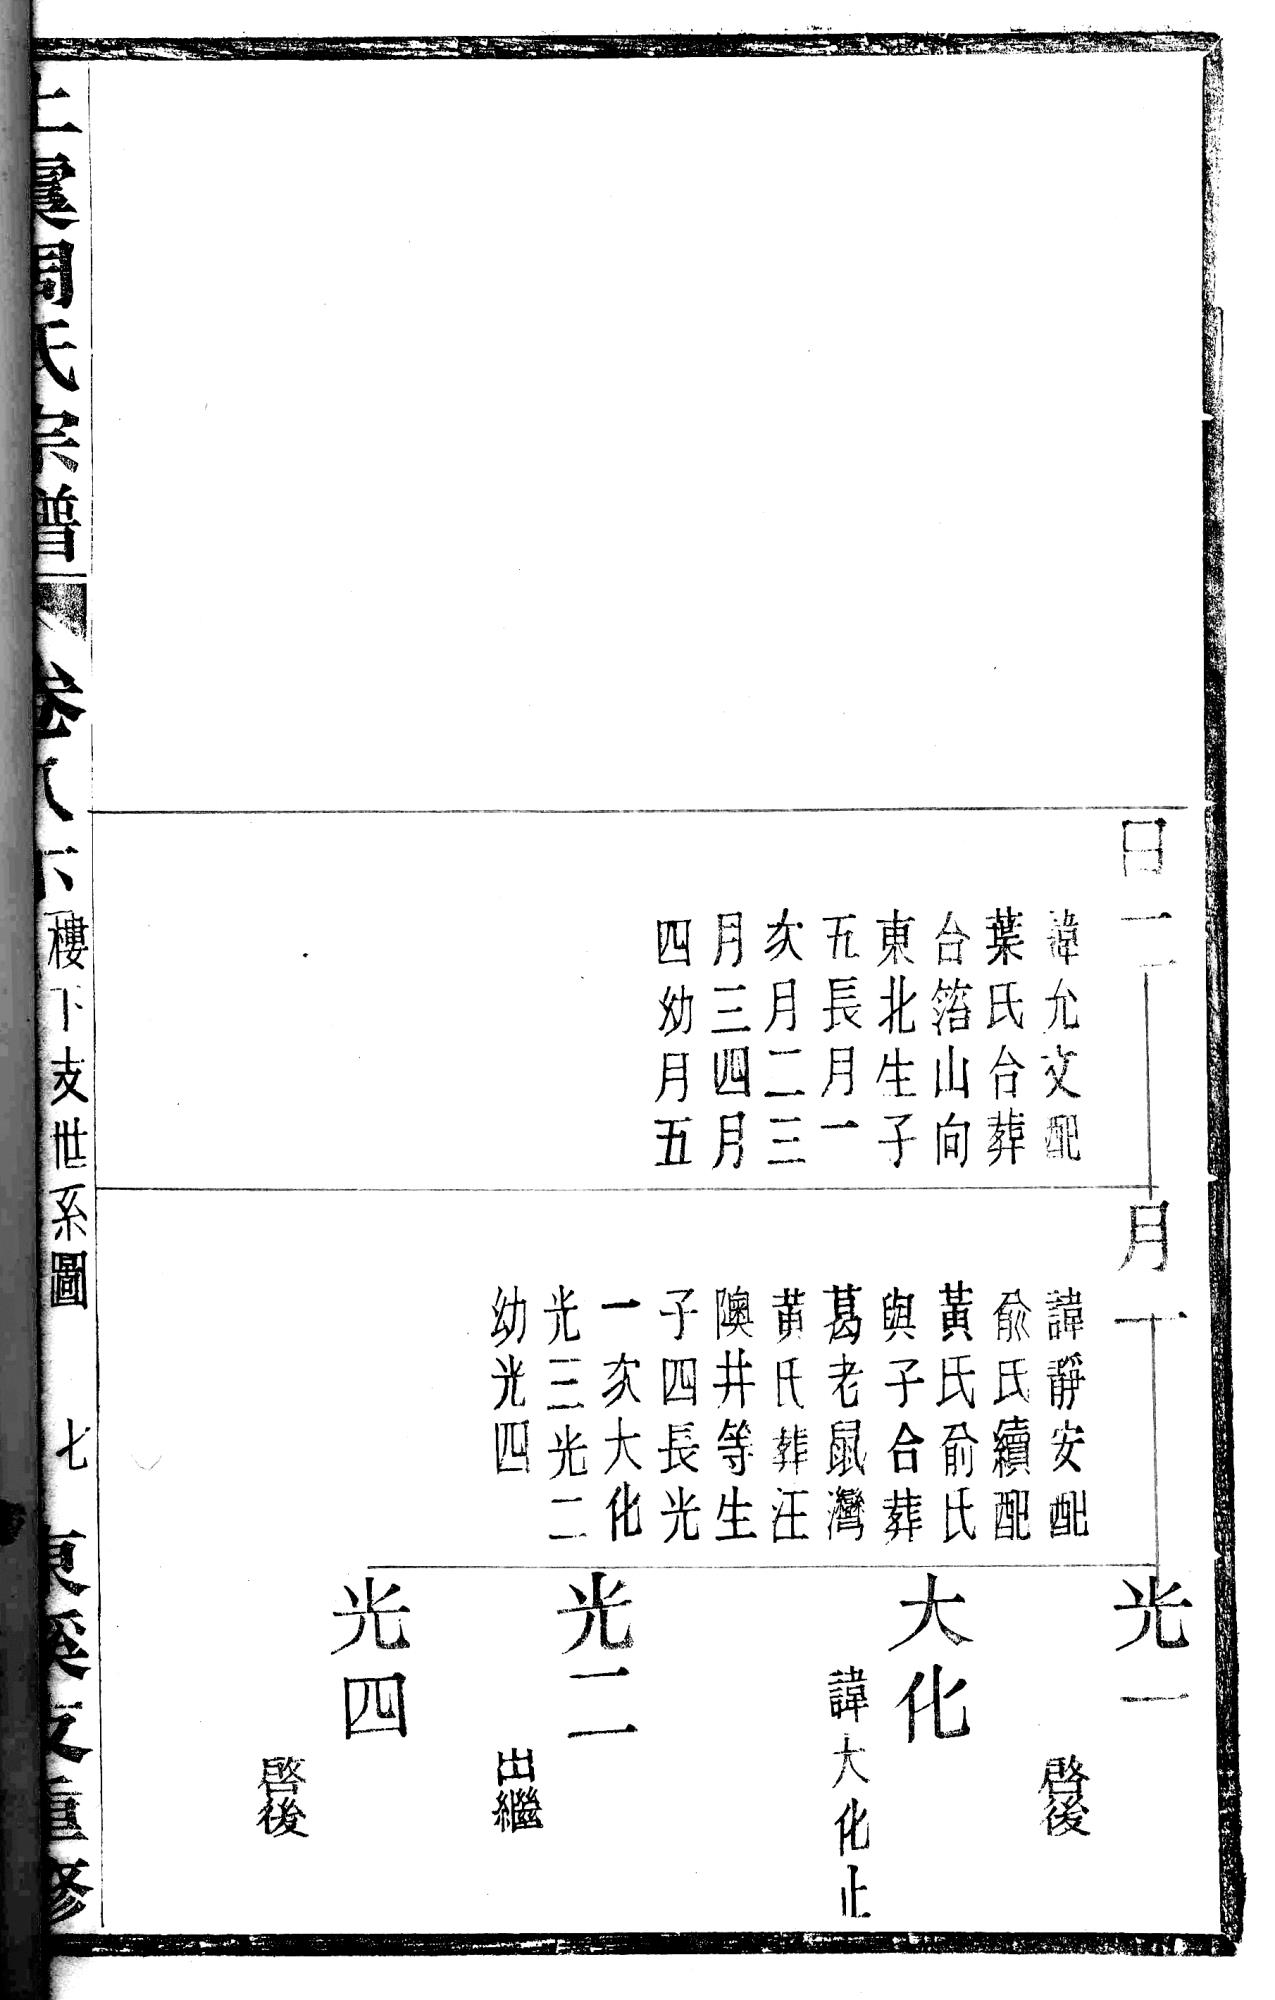 日一
諱允文配
葉氏台葬
台箔山向
東北生子
五長月一
次月二三
月三四月
四幼月五
月一
諱靜安配
俞氏續配
黃氏俞氏
與子合葬
葛老鼠灣
黃氏葬汪
隩井等生
子四長光
一次大化
光三光二
幼光四
光一
啓後
大化
諱大化止
光二
出繼
光四
啓後
上虞周氏宗譜
卷八下
樓下支世系圖
七
東溪重修